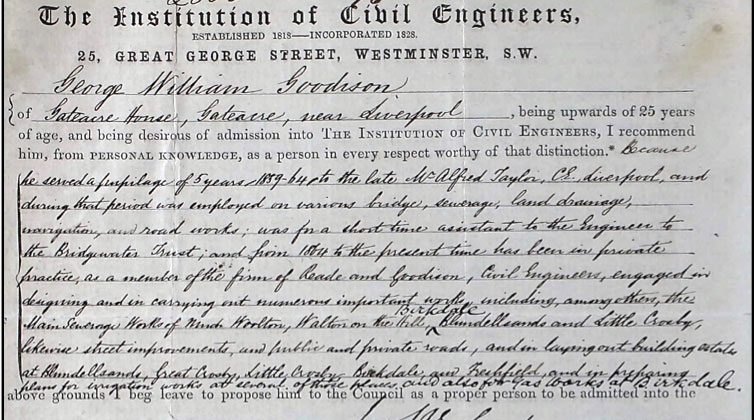 The Institution of Civil Engineers,
ESTABLISHED 1818—INCORPORATED 1828.
25, GREAT GEORGE STREET, WESTMINSTER, S.W.
George William Goodison
of Gateacre House, Gateacre, near Liverpool, being upwards of 25 years
of age, and being desirous of admission into THE INSTITUTION OF CIVIL ENGINEERS, I recommend
him, from PERSONAL KNOWLEDGE, as a person in every respect worthy of that distinction.* Because
he served a pupilage of 5 years 1859-64 to the late Mr Alfred Taylor, C.E. Liverpool, and
during that period was employed on various bridge, sewerage, land drainage,
navigation, and road works; was for a short time assistant to the Engineer to
the Bridgwater Trust; and from 1864 to the present time has been in private
practice, as a member of the firm of Reade and Goodison, Civil Engineers, engaged in
designing and in carrying out numerous important works, including, among others, the
Main Sewerage Works of Much Woolton, Walton on the Hill, Birkdale, Blundellsands and Little Crosby,
likewise street improvements, and public and private roads, and in laying out building estates
at Blundellsands, Great Crosby, Little Crosby, Birkdale, and Freshfield, and in preparing
plans for irrigation works at several of those places, and also for Gas Works at Birkdale.
above grounds I beg leave to propose him to the Council as a proper person to be admitted into the